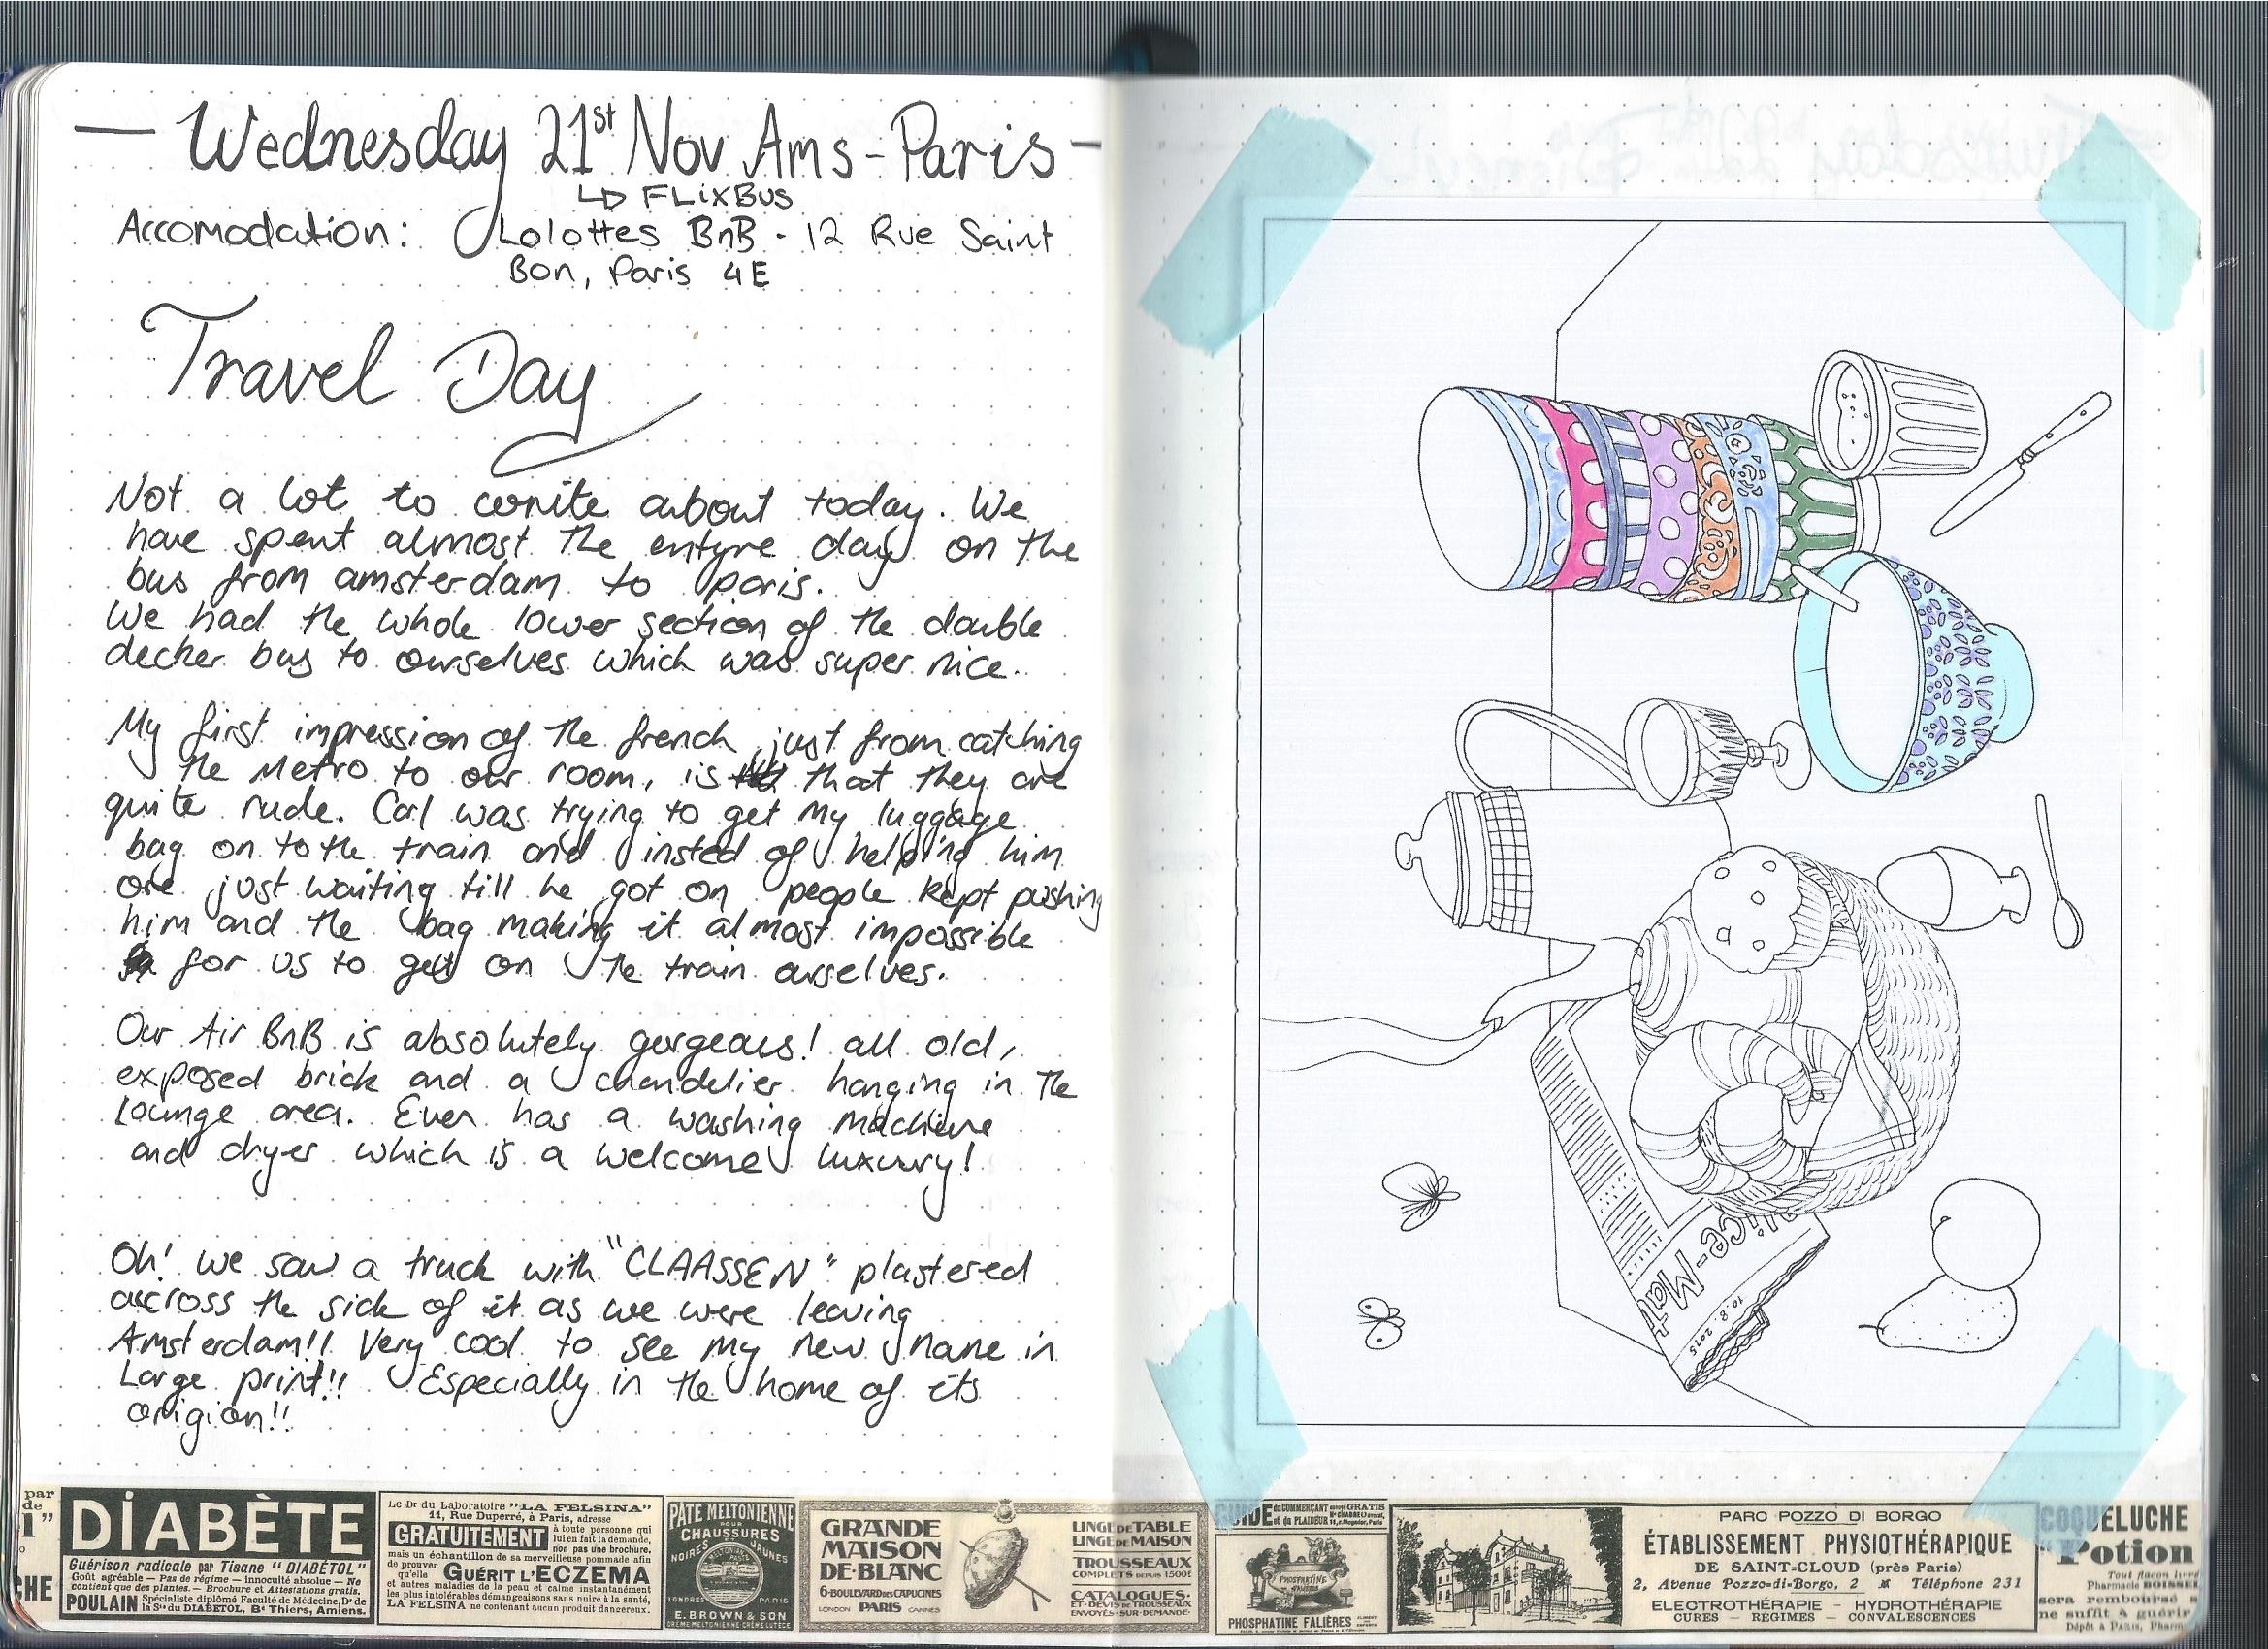 — Wednesday 21st Nov Ams-Paris -
↳ FLixBus
Accomodation: Lolottes BnB - 12 Rue Saint
Bon, Paris 4E
Travel Day
Not a lot to write about today. We
have spent almost the entyre day on the
bus from amsterdam to paris.
We had the whole lower section of the double
decker bus to ourselves which was super nice.
My first impression of the french, just from catching
the Metro to our room, is that they are
quite rude. Carl was trying to get my luggage
bag on to the train and insted of helping him
ore just waiting till he got on people kept pushing
him and the bag making it almost impossible
for us to get on the train ourselves.
Our Air BnB is absolutely gorgeous! all old,
exposed brick and a chandelier hanging in the
lounge area. Even has a washing machiene
and dryer which is a welcome luxury!
Oh! we saw a truck with "CLAASSEN" plastered
accross the side of it as we were leaving
Amsterdam!! Very cool to see my new name in
Large print!! Especially in the home of its
origion!!
alice-Mat
10.8.2015
par
de
i"
CHE
DIABÈTE
Guérison radicale par Tisane "DIABÉTOL"
Goût agréable — Pas de régime — Innocuité absolue — Ne
contient que des plantes. — Brochure et Attestations gratis.
POULAIN Spécialiste diplômé Faculté de Médecine, Dr de
la Sté du DIABÉTOL, Bd Thiers, Amiens.
Le Dr du Laboratoire "LA FELSINA"
11, Rue Duperré, à Paris, adresse
GRATUITEMENT à toute personne qui
lui en fait la demande,
non pas une brochure,
mais un échantillon de sa merveilleuse pommade afin
de prouver qu'elle GUÉRIT L'ECZEMA
et autres maladies de la peau et calme instantanément
les plus intolérables démangeaisons sans nuire à la santé,
LA FELSINA ne contenant aucun produit dangereux.
PATE MELTONIENNE
POUR
CHAUSSURES
NOIRES JAUNES
LONDRES PARIS
E. BROWN & SON
GRANDE
MAISON
DE·BLANC
6·BOULEVARD DES CAPUCINES
LONDON PARIS CANNES
LINGE DE TABLE
LINGE DE MAISON
TROUSSEAUX
COMPLETS DEPUIS 1500F
CATALOGUES·
ET·DEVIS DE TROUSSEAUX
ENVOYÉS·SUR·DEMANDE·
GUIDE du COMMERÇANT GRATIS
et du PLAIDEUR
PHOSPHATINE
FALIÈRES
PHOSPHATINE FALIÈRES
PARC POZZO DI BORGO
ÉTABLISSEMENT PHYSIOTHÉRAPIQUE
DE SAINT-CLOUD (près Paris)
2, Avenue Pozzo-di-Borgo, 2 Téléphone 231
ELECTROTHÉRAPIE — HYDROTHÉRAPIE
CURES — RÉGIMES — CONVALESCENCES
COQUELUCHE
Potion
Tout flacon
Pharmacie BOISSEL
sera remboursé s
ne suffit à guérir
Dépôt à PARIS, Pharm